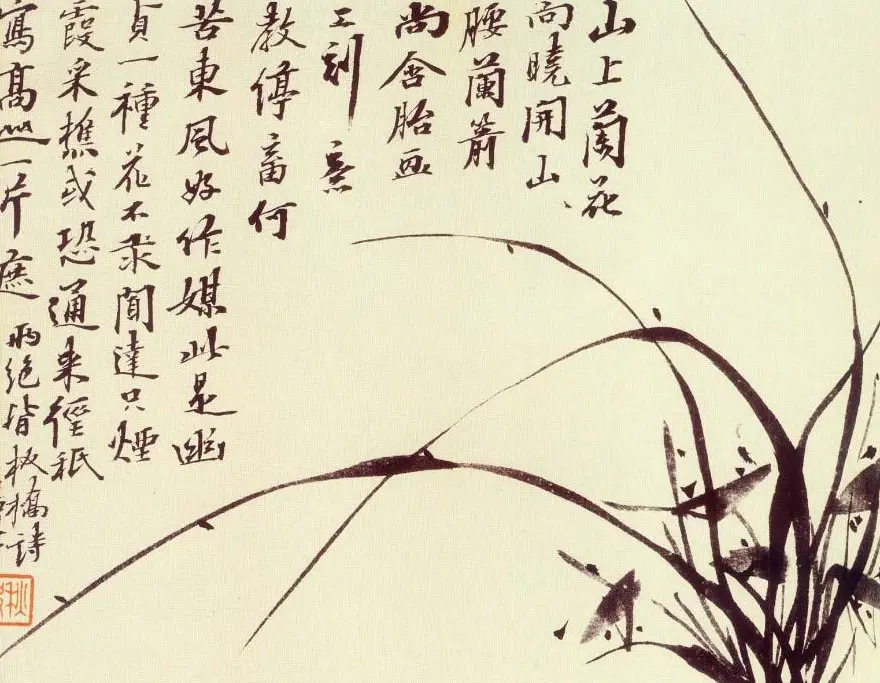 山上蘭花
向曉開山
腰蘭箭
尚含胎画
工刻意
教停畜何
苦東風好作媒此是幽
貞一種花不求聞達只煙
霞采樵或恐通来徑祇
寫高山一片遮兩絕皆板橋詩